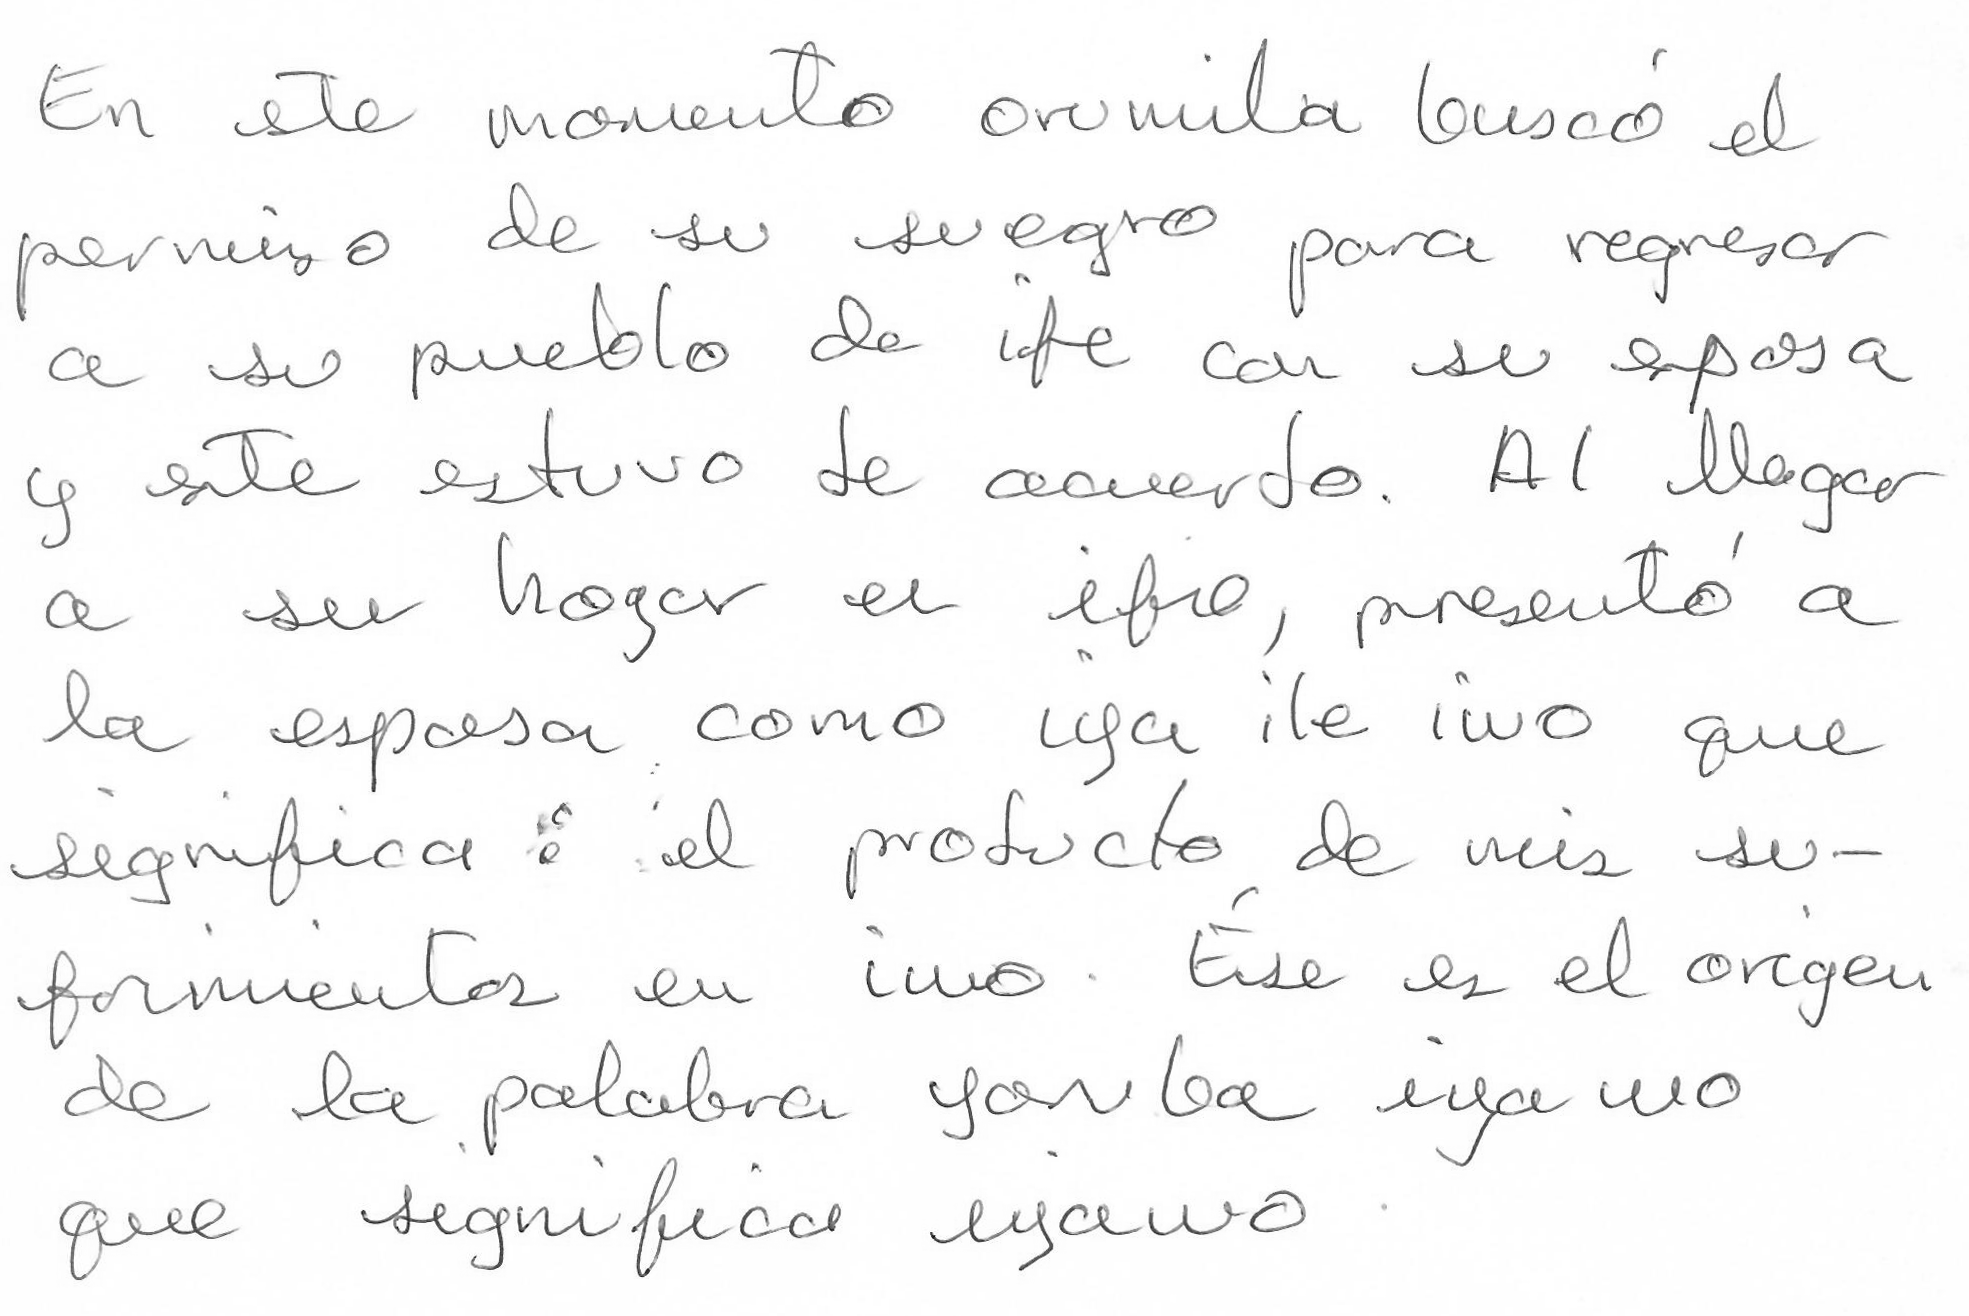 En este momento orumila buscó el
permiso de su suegro para regresar
a su pueblo de ife con su esposa
y este estuvo de acuerdo. Al llegar
a su hogar en ifie, presentó a
la esposa como iya ile iwo que
significa: el producto de mis su-
frimientos en iwo. Ése es el origen
de la palabra yoruba iyawo
que significa iyawo.